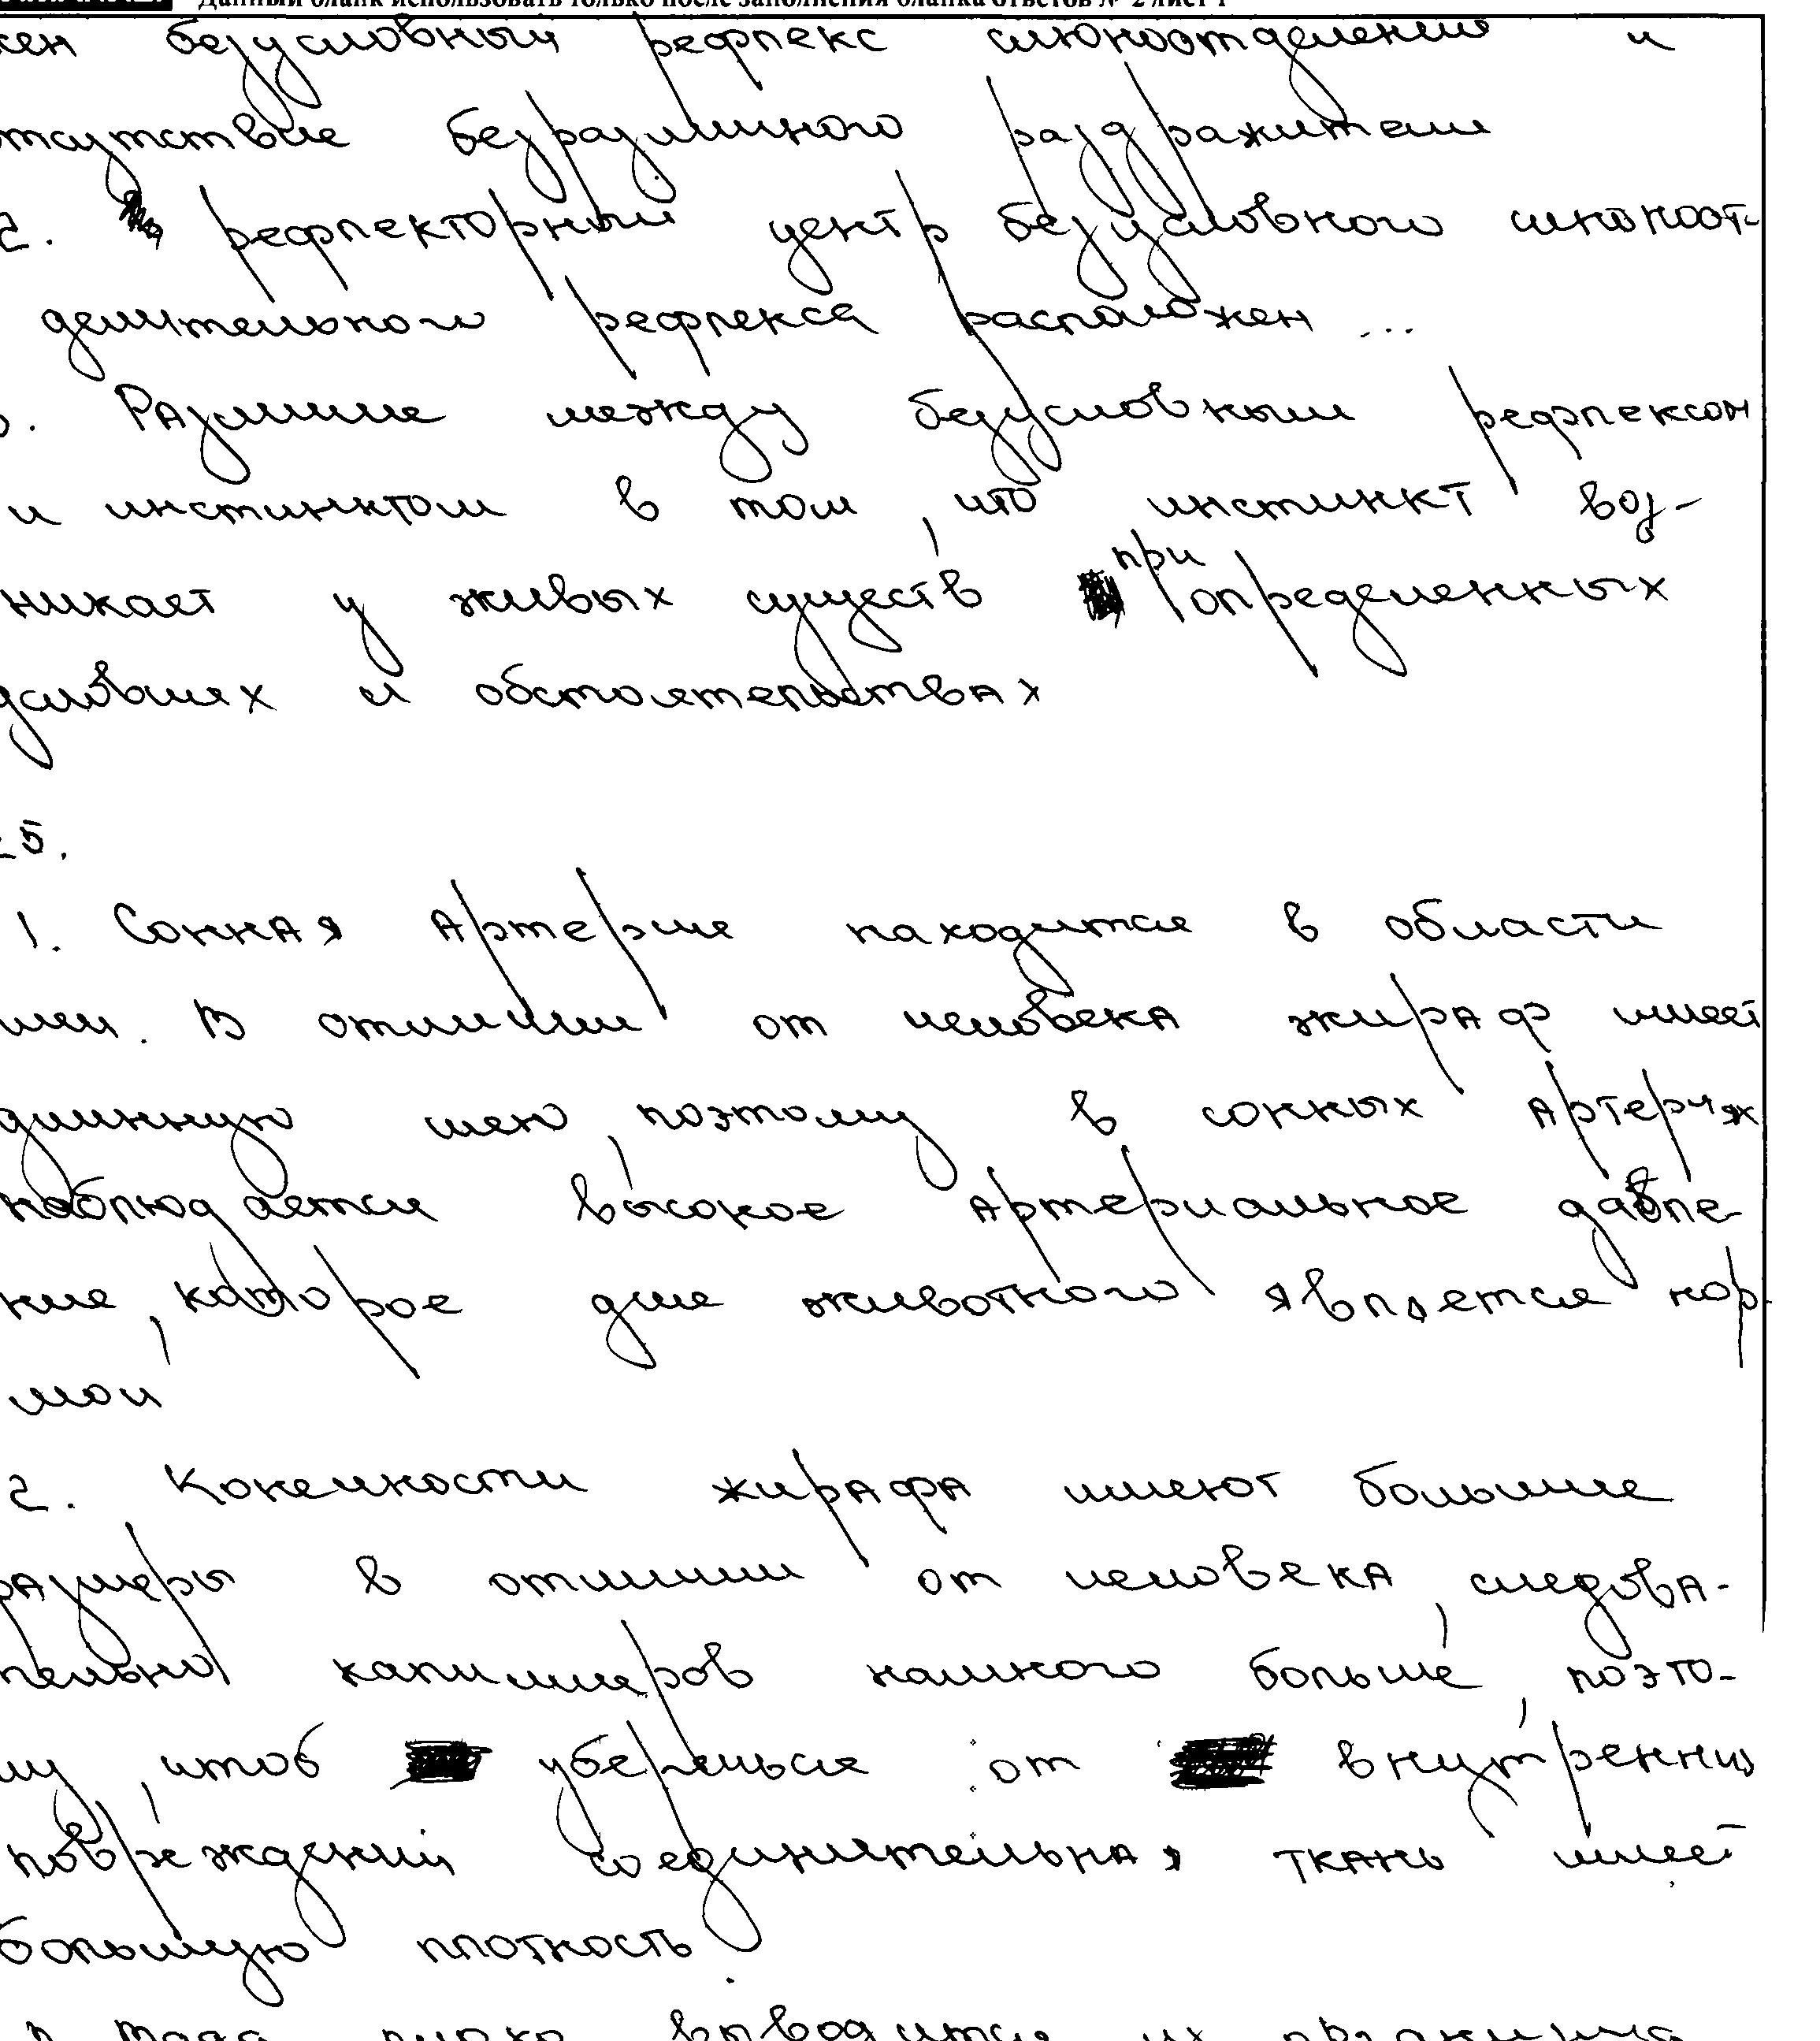 Данный бланк использовать только после заполнения бланка ответов № 2 лист 1
жен безусловный рефлекс слюноотделения и
отсутствие безразличного раздражителя
2. рефлекторный центр безусловного слюноот-
делительного рефлекса расположен ...
3. Различие между безусловным рефлексом
и инстинктом в том, что инстинкт воз-
никает у живых существ при определенных
условиях и обстоятельствах
25.
1. Сонная Артерия находится в области
шеи. В отличии от человека жираф имеет
длинную шею, поэтому в сонных Артериях
наблюдается высокое Артериальное давле-
ние, которое для животного является нор-
мой
2. Конечности жирафа имеют большие
размеры в отличии от человека, следова-
тельно капилляров намного больше, поэто-
му, чтоб уберечься от внутренних
повреждений соединительная ткань имеет
большую плотность.
выводится из организма